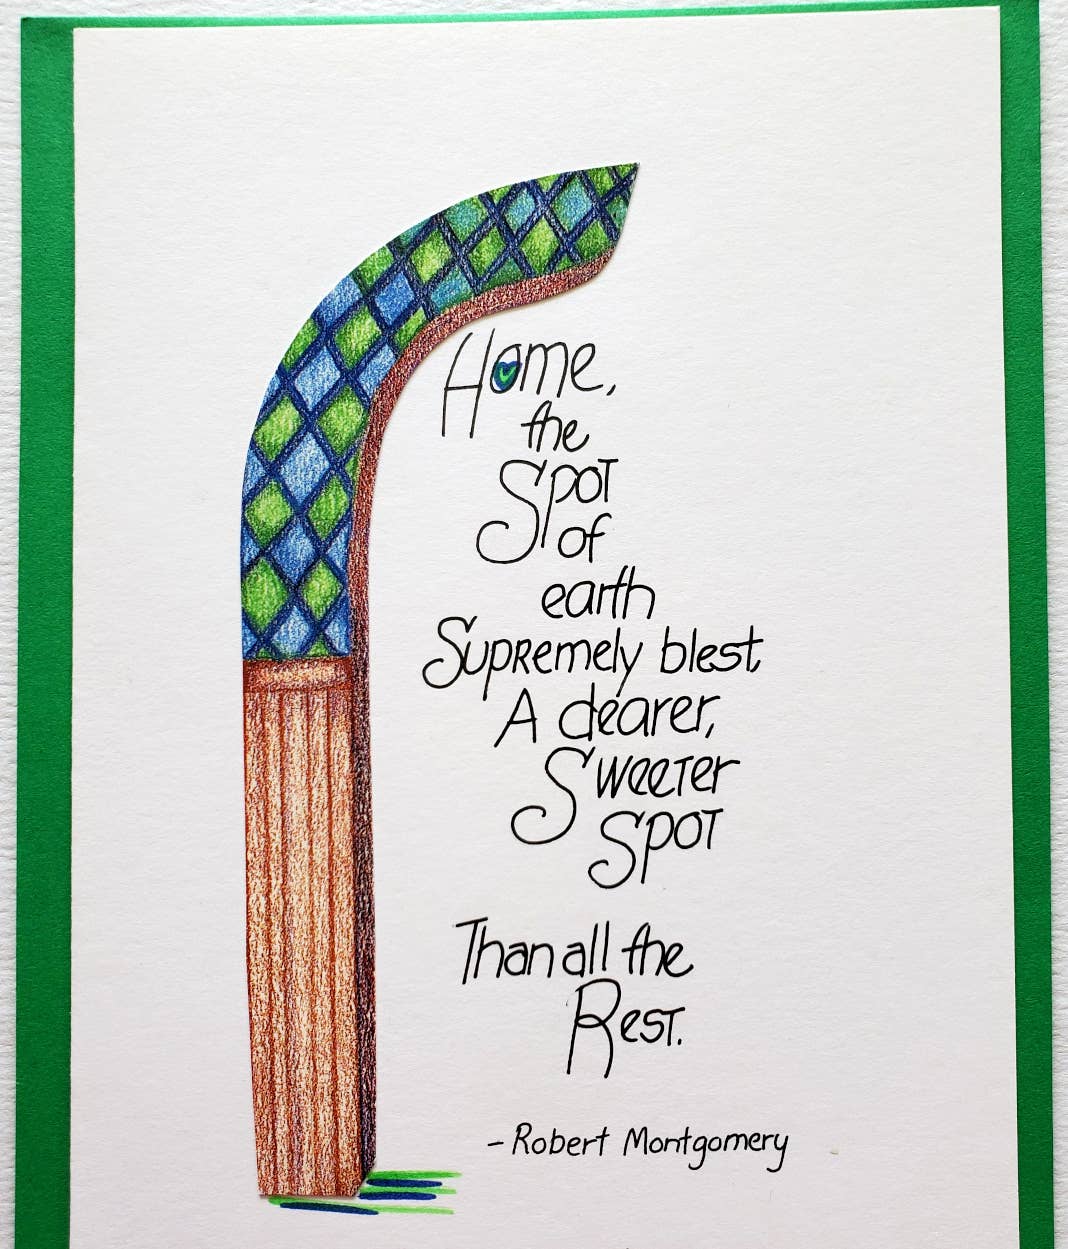 Home,
the
Spot
of
earth
Supremely blest,
A dearer,
Sweeter
Spot
Than all the
Rest.
- Robert Montgomery